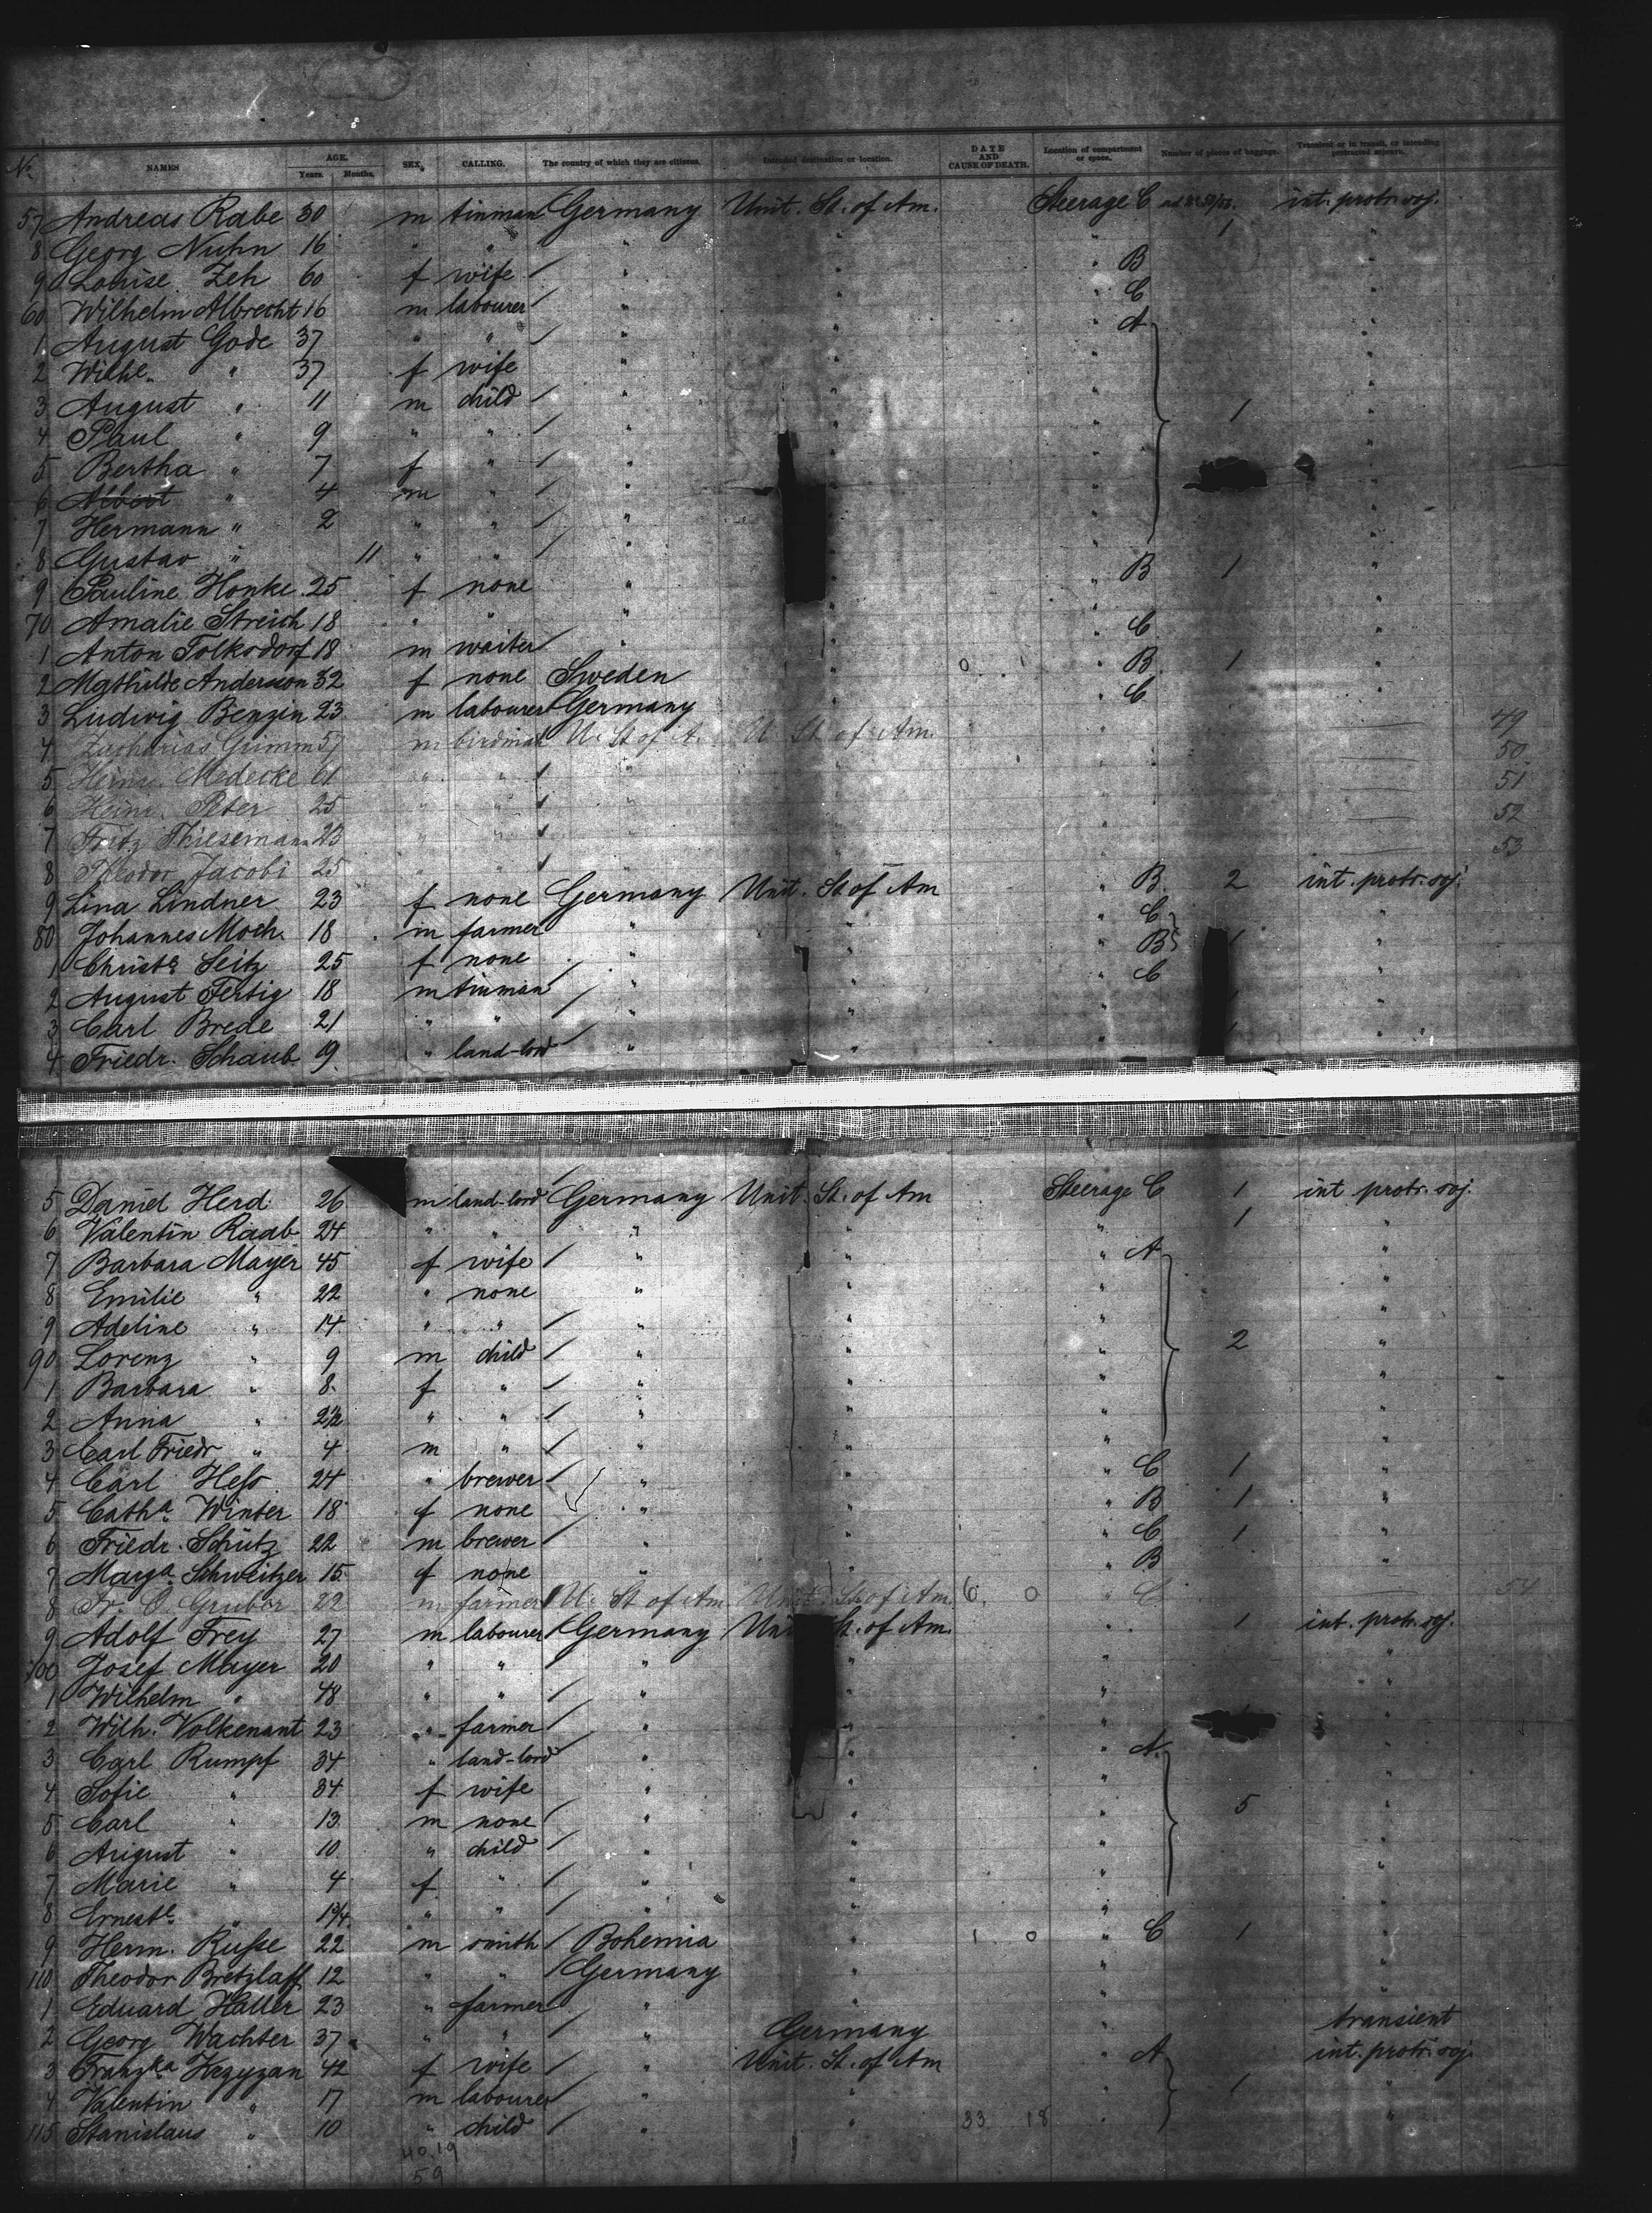 No. NAMES AGE. Years. Months. SEX. CALLING. The country of which they are citizens. Intended destination or location. DATE AND CAUSE OF DEATH. Location of compartment or space. Number of pieces of baggage. Transient or in transit, or intending protracted sojourn.
57 Andreas Rabe 30 m tinman Germany Unit. St. of Am. Steerage C 1 int. protr. soj.
8 Georg Nuhn 16 " " " " " "
9 Louise Zeh 60 f wife " " " B "
60 Wilhelm Albrecht 16 m labourer " " " C "
1 August Gode 37 " " " " " A "
2 Wilhe. " 37 f wife " " " "
3 August " 11 m child " " " 1 "
4 Paul " 9 " " " " " "
5 Bertha " 7 f " " " " "
6 Albert " 4 m " " " " "
7 Hermann " 2 " " " " " "
8 Gustav " 11 " " " " " "
9 Pauline Honke 25 f none " " " B 1 "
70 Amalie Streich 18 " " " " " "
1 Anton Tolksdorf 18 m waiter " " " C "
2 Mathilde Andersson 32 f none Sweden " 0 1 " B 1 "
3 Ludwig Benzin 23 m labourer Germany " " C "
4 Zacharias Grimm 57 m birdman U. St of A. U. St of Am. " 49
5 Heinr. Medecke 61 " " " " 50
6 Heinr. Peter 25 " " " " 51
7 Fritz Thiesemann 23 " " " 52
8 Theodor Jacobi 25 " " " 53
9 Lina Lindner 23 f none Germany Unit. St of Am " B 2 int. protr. soj.
80 Johannes Moch 18 m farmer " " " C "
1 Christe Seitz 25 f none " " " B 1 "
2 August Fertig 18 m tinman " " " C "
3 Carl Brede 21 " " " " " 1 "
4 Friedr. Schaub 19 " land-lord " " " 1 "
5 Daniel Herd 26 m land-lord Germany Unit. St. of Am Steerage C 1 int. protr. soj.
6 Valentin Raab 24 " " " " " 1 "
7 Barbara Mayer 45 f wife " " " A "
8 Emilie " 22 " none " " " "
9 Adeline " 14 " " " " " "
90 Lorenz " 9 m child " " " 2 "
1 Barbara " 8 f " " " " "
2 Anna " 2½ " " " " " "
3 Carl Friedr. " 4 m " " " " "
4 Carl Heß 24 " brewer " " " C 1 "
5 Catha. Winter 18 f none " " " B 1 "
6 Friedr. Schütz 22 m brewer " " " C 1 "
7 Marga. Schweitzer 15 f none " " " B "
8 Fr. O. Gruber 29 m farmer U. St of Am Unit. St of Am. 6 0 " C 54
9 Adolf Frey 27 m labourer Germany Unit. St. of Am. " 1 int. protr. soj.
100 Josef Mayer 20 " " " " " "
1 Wilhelm " 48 " " " " " "
2 Wilh. Volkenant 23 " farmer " " " "
3 Carl Rumpf 34 " land-lord " " " A "
4 Sofie " 34 f wife " " " "
5 Carl " 13 m none " " " 5 "
6 August " 10 " child " " " "
7 Marie " 4 f " " " " "
8 Erneste. " 1¾ " " " " " "
9 Herm. Ruße 22 m smith Bohemia " 1 0 " C 1 "
110 Theodor Bretzlaff 12 " " Germany " " "
1 Eduard Haller 23 " farmer " " " "
2 Georg Wachter 37 " " " Germany " transient
3 Franzka Kezyzan 42 f wife " Unit. St. of Am " A int. protr. soj.
4 Valentin " 17 m labourer " " " 1 "
115 Stanislaus " 10 " child " " 33 18 " "
40.19
59